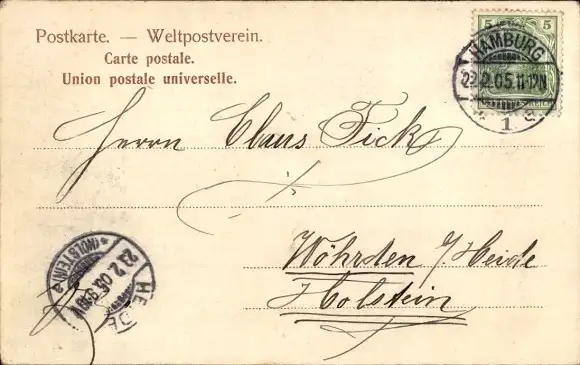 Postkarte. — Weltpostverein.
Carte postale.
Union postale universelle.
5 5
HAMBURG
22.2.05.11-12N
* 1 e
Herrn Claus Fick
Wöhrden b/Heide
Holstein
HEIDE
23.2.05.
* (HOLSTEIN) e